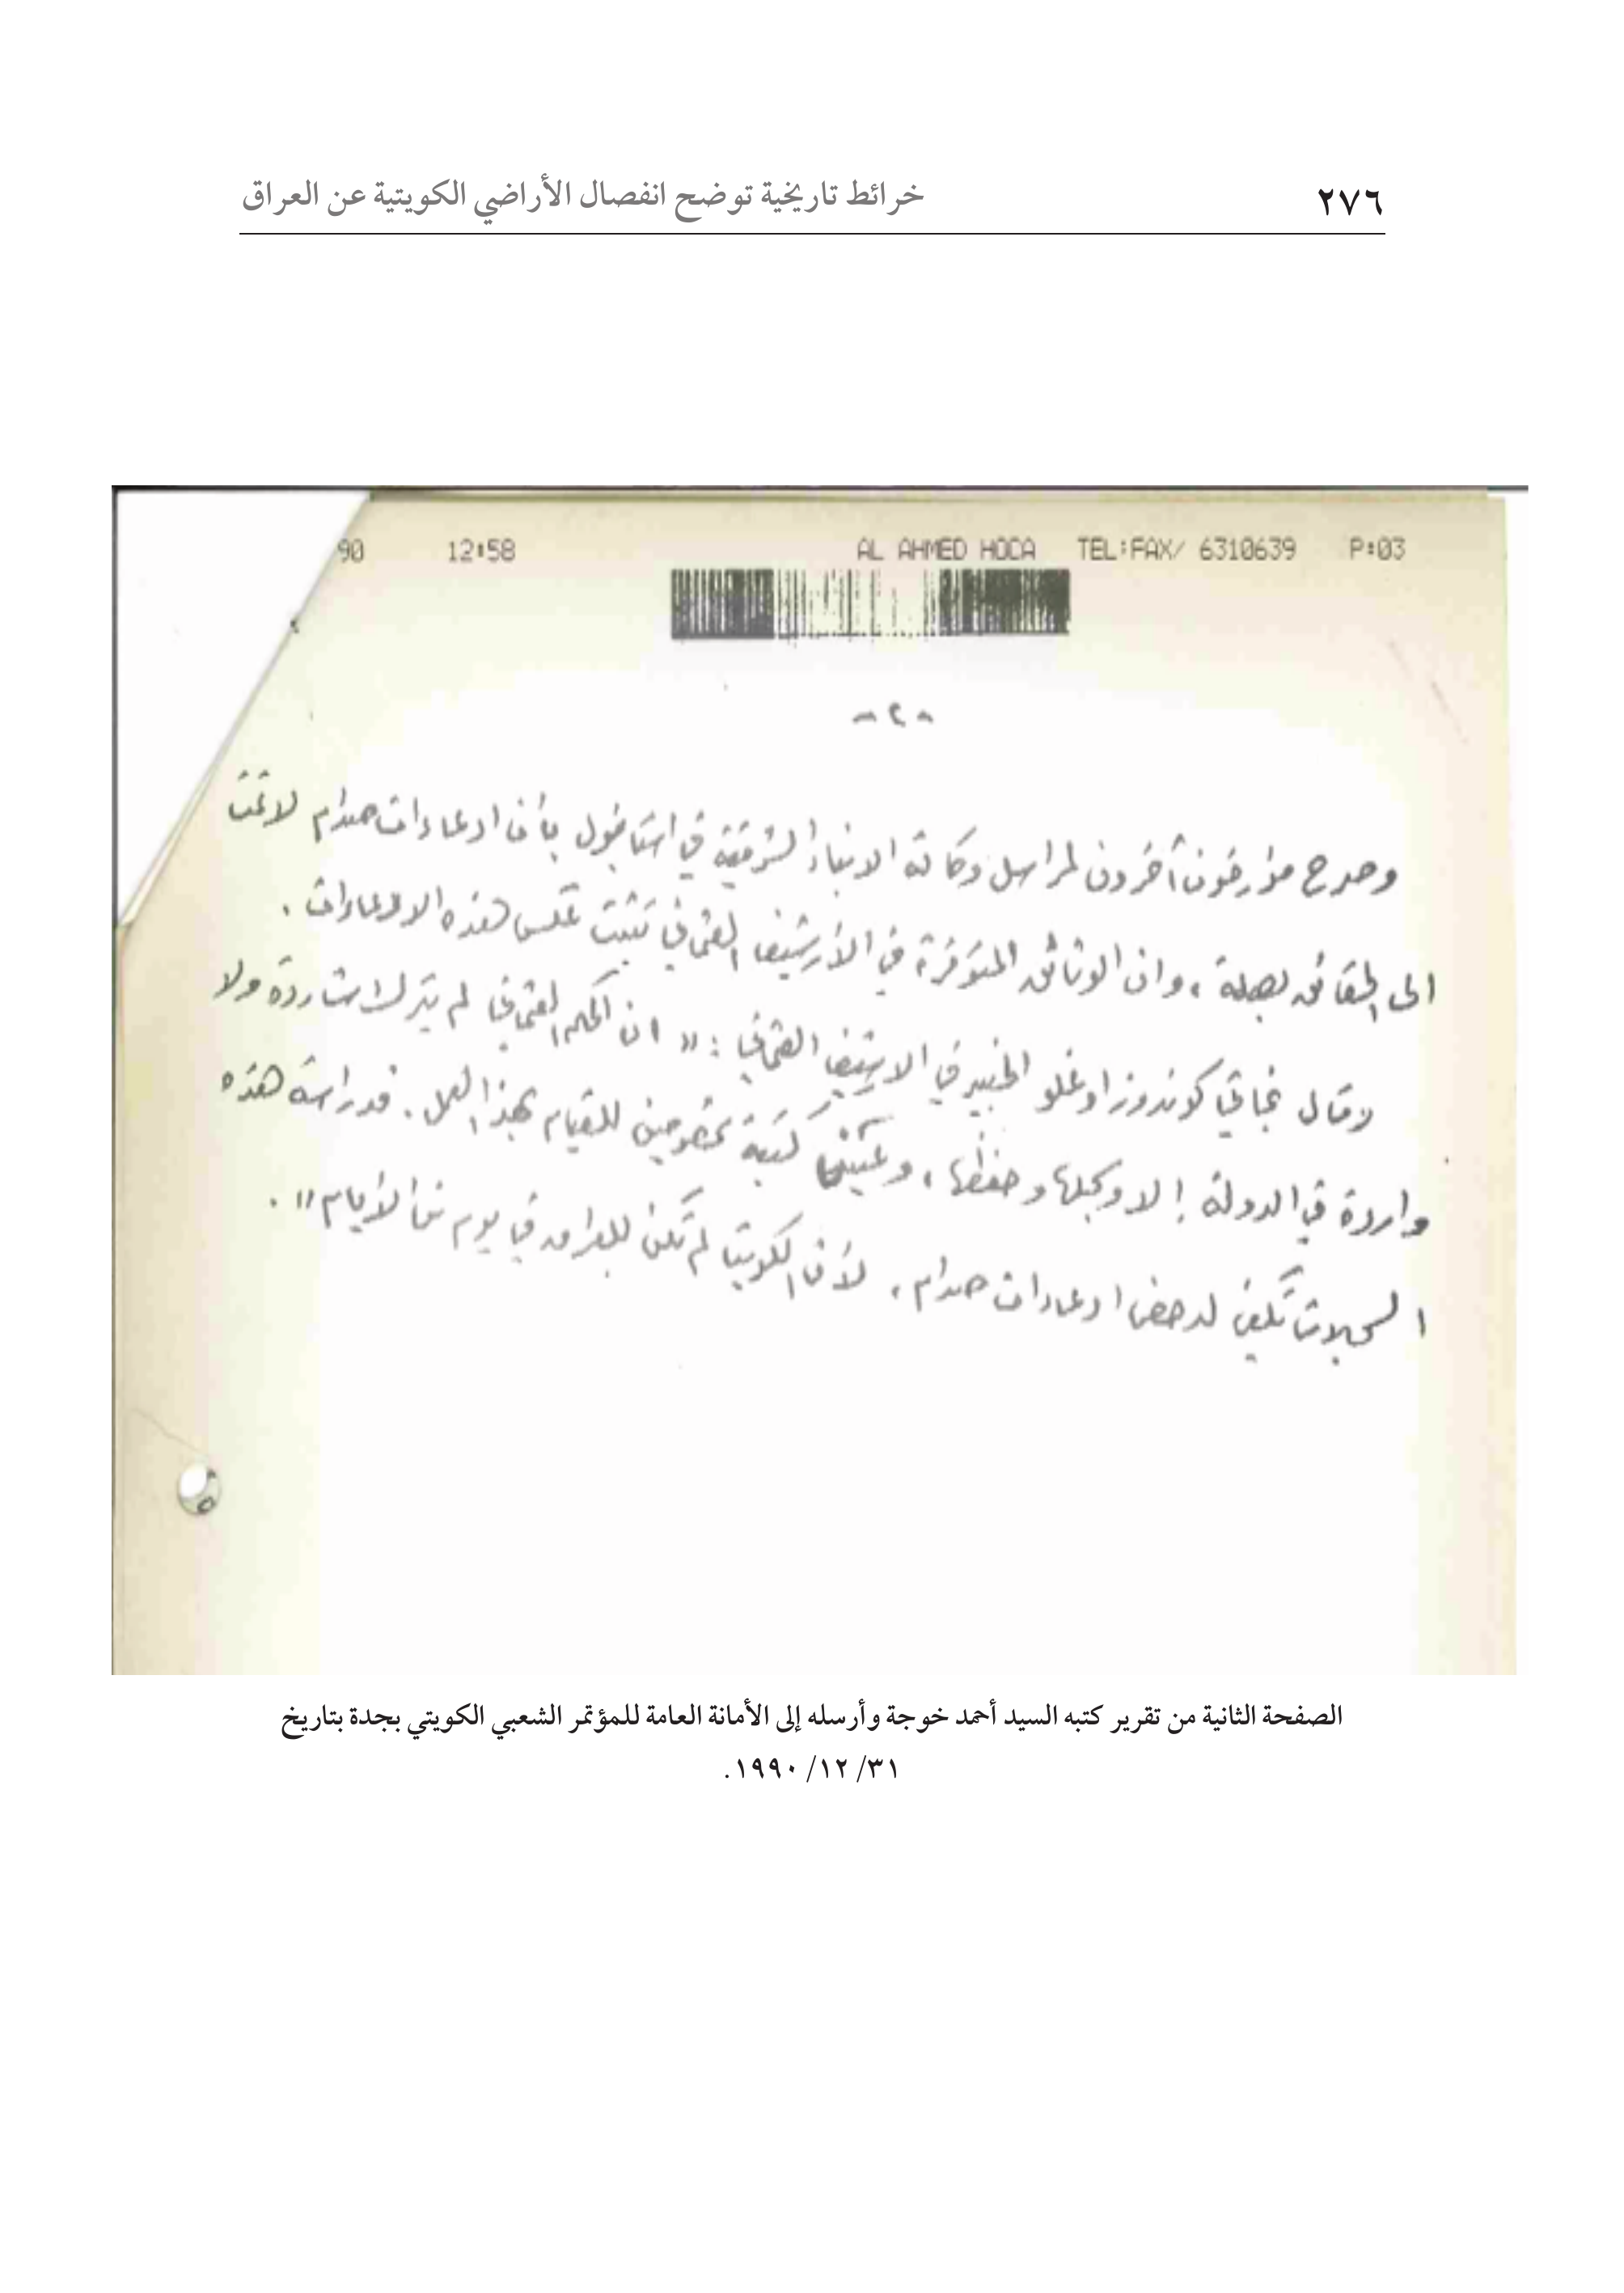 ٢٧٦
خرائط تاريخية توضح انفصال الأراضي الكويتية عن العراق
90 12:58 AL AHMED HOCA TEL:FAX/ 6310639 P:03
- ٢ -
وصرح مؤرخون آخرون لمراسل وكالة الانباء الشرقية في استانبول بأن ادعاءات صدام لا تمت
الى الحقائق بصلة ، وان الوثائق المتوفرة في الأرشيف العثماني تثبت عكس هذه الادعاءات .
وقال نجاتي كوندوز اوغلو الخبير في الارشيف العثماني : " ان الحكم العثماني لم يترك شاردة ولا
واردة في الدولة إلا وسجلها وحفظها ، وعيّن كتبة مخصوصين للقيام بهذا العمل . فدراسة هذه
السجلات تكفي لدحض ادعاءات صدام ، لأن الكويت لم تكن للعراق في يوم من الأيام " .
الصفحة الثانية من تقرير كتبه السيد أحمد خوجة وأرسله إلى الأمانة العامة للمؤتمر الشعبي الكويتي بجدة بتاريخ
٣١/ ١٢/ ١٩٩٠.